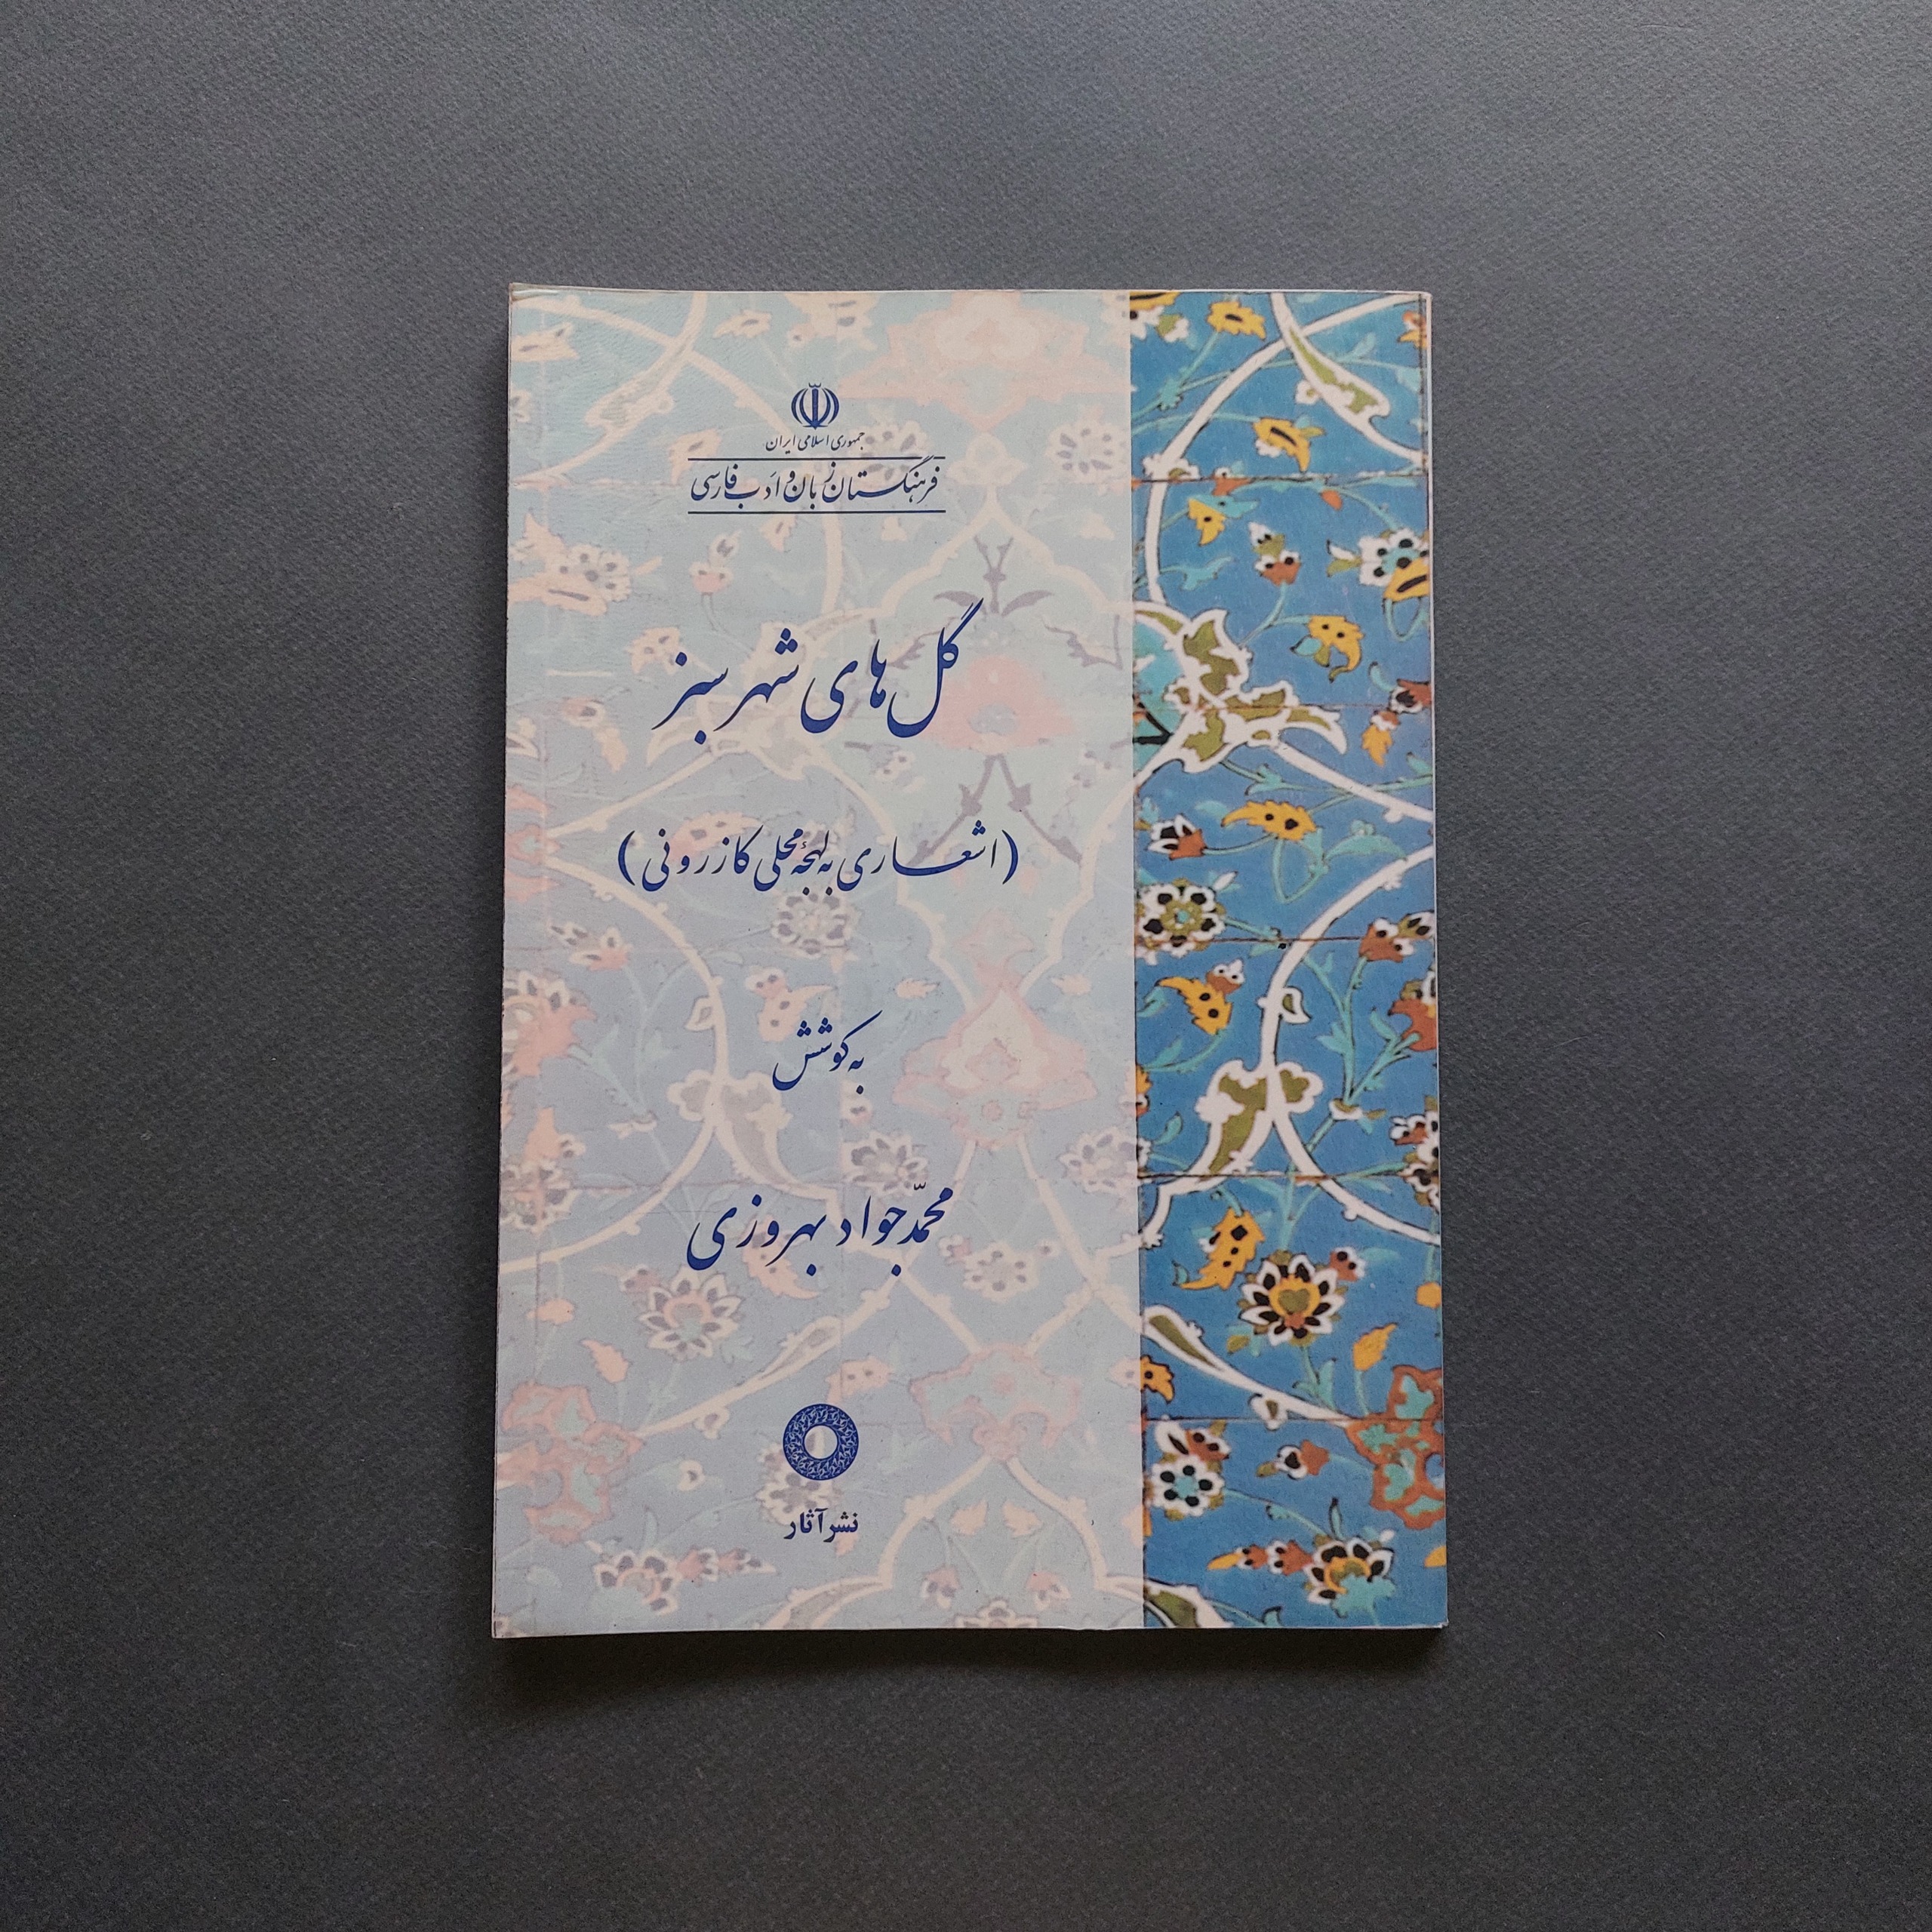 جمهوری اسلامی ایران
فرهنگستان زبان و ادب فارسی
گل‌های شهر سبز
(اشعاری به لهجهٔ محلی کازرونی)
به کوشش
محمّدجواد بهروزی
نشر آثار